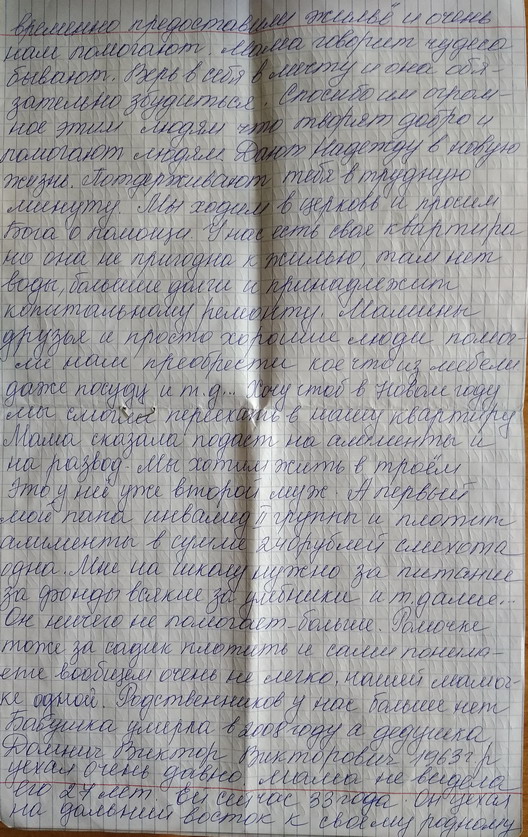 временно предоставили жильё и очень
нам помогают. Мама говорит чудеса
бывают. Верь в себя в мечту и она обя-
зательно збудиться. Спосибо им огром-
ное этим людям что творят добро и
помогают людям. Дают Надежду в новую
жизнь. Потдерживают тебя в трудную
минуту. Мы ходим в церковь и просим
Бога о помощи. У нас есть своя квартира
но она не пригодна к жилью, там нет
воды, большие долги и принадлежит
копитальному ремонту. Мамины
друзья и просто хорошие люди помог-
ли нам преобрести кое что из мебели
даже посуду и т.д... Хочу чтоб в Новом году
мы смогли переехать в нашу квартиру
Мама сказала подаст на алименты и
на развод. Мы хотим жить в троём
Это у неё уже второй муж. А первый
мой папа инвалид II группы и плотит
алименты в сумме 240рублей смехота
одна. Мне на школу нужно за питание
за фонды всякие за учебники и т.далие...
Он ничего не помогает больше. Ромочке
тоже за садик плотить и сами понема-
ете вообщем очень не легко нашей мамоч-
ке одной. Родственников у нас больше нет
Бабушка умерла в 2008 году а дедушка
Виктор Викторович 1963г/р
уехал очень давно мама не видела
его 27 лет. Ей сейчас 33 года. Он уехал
на дальний восток к своему родному